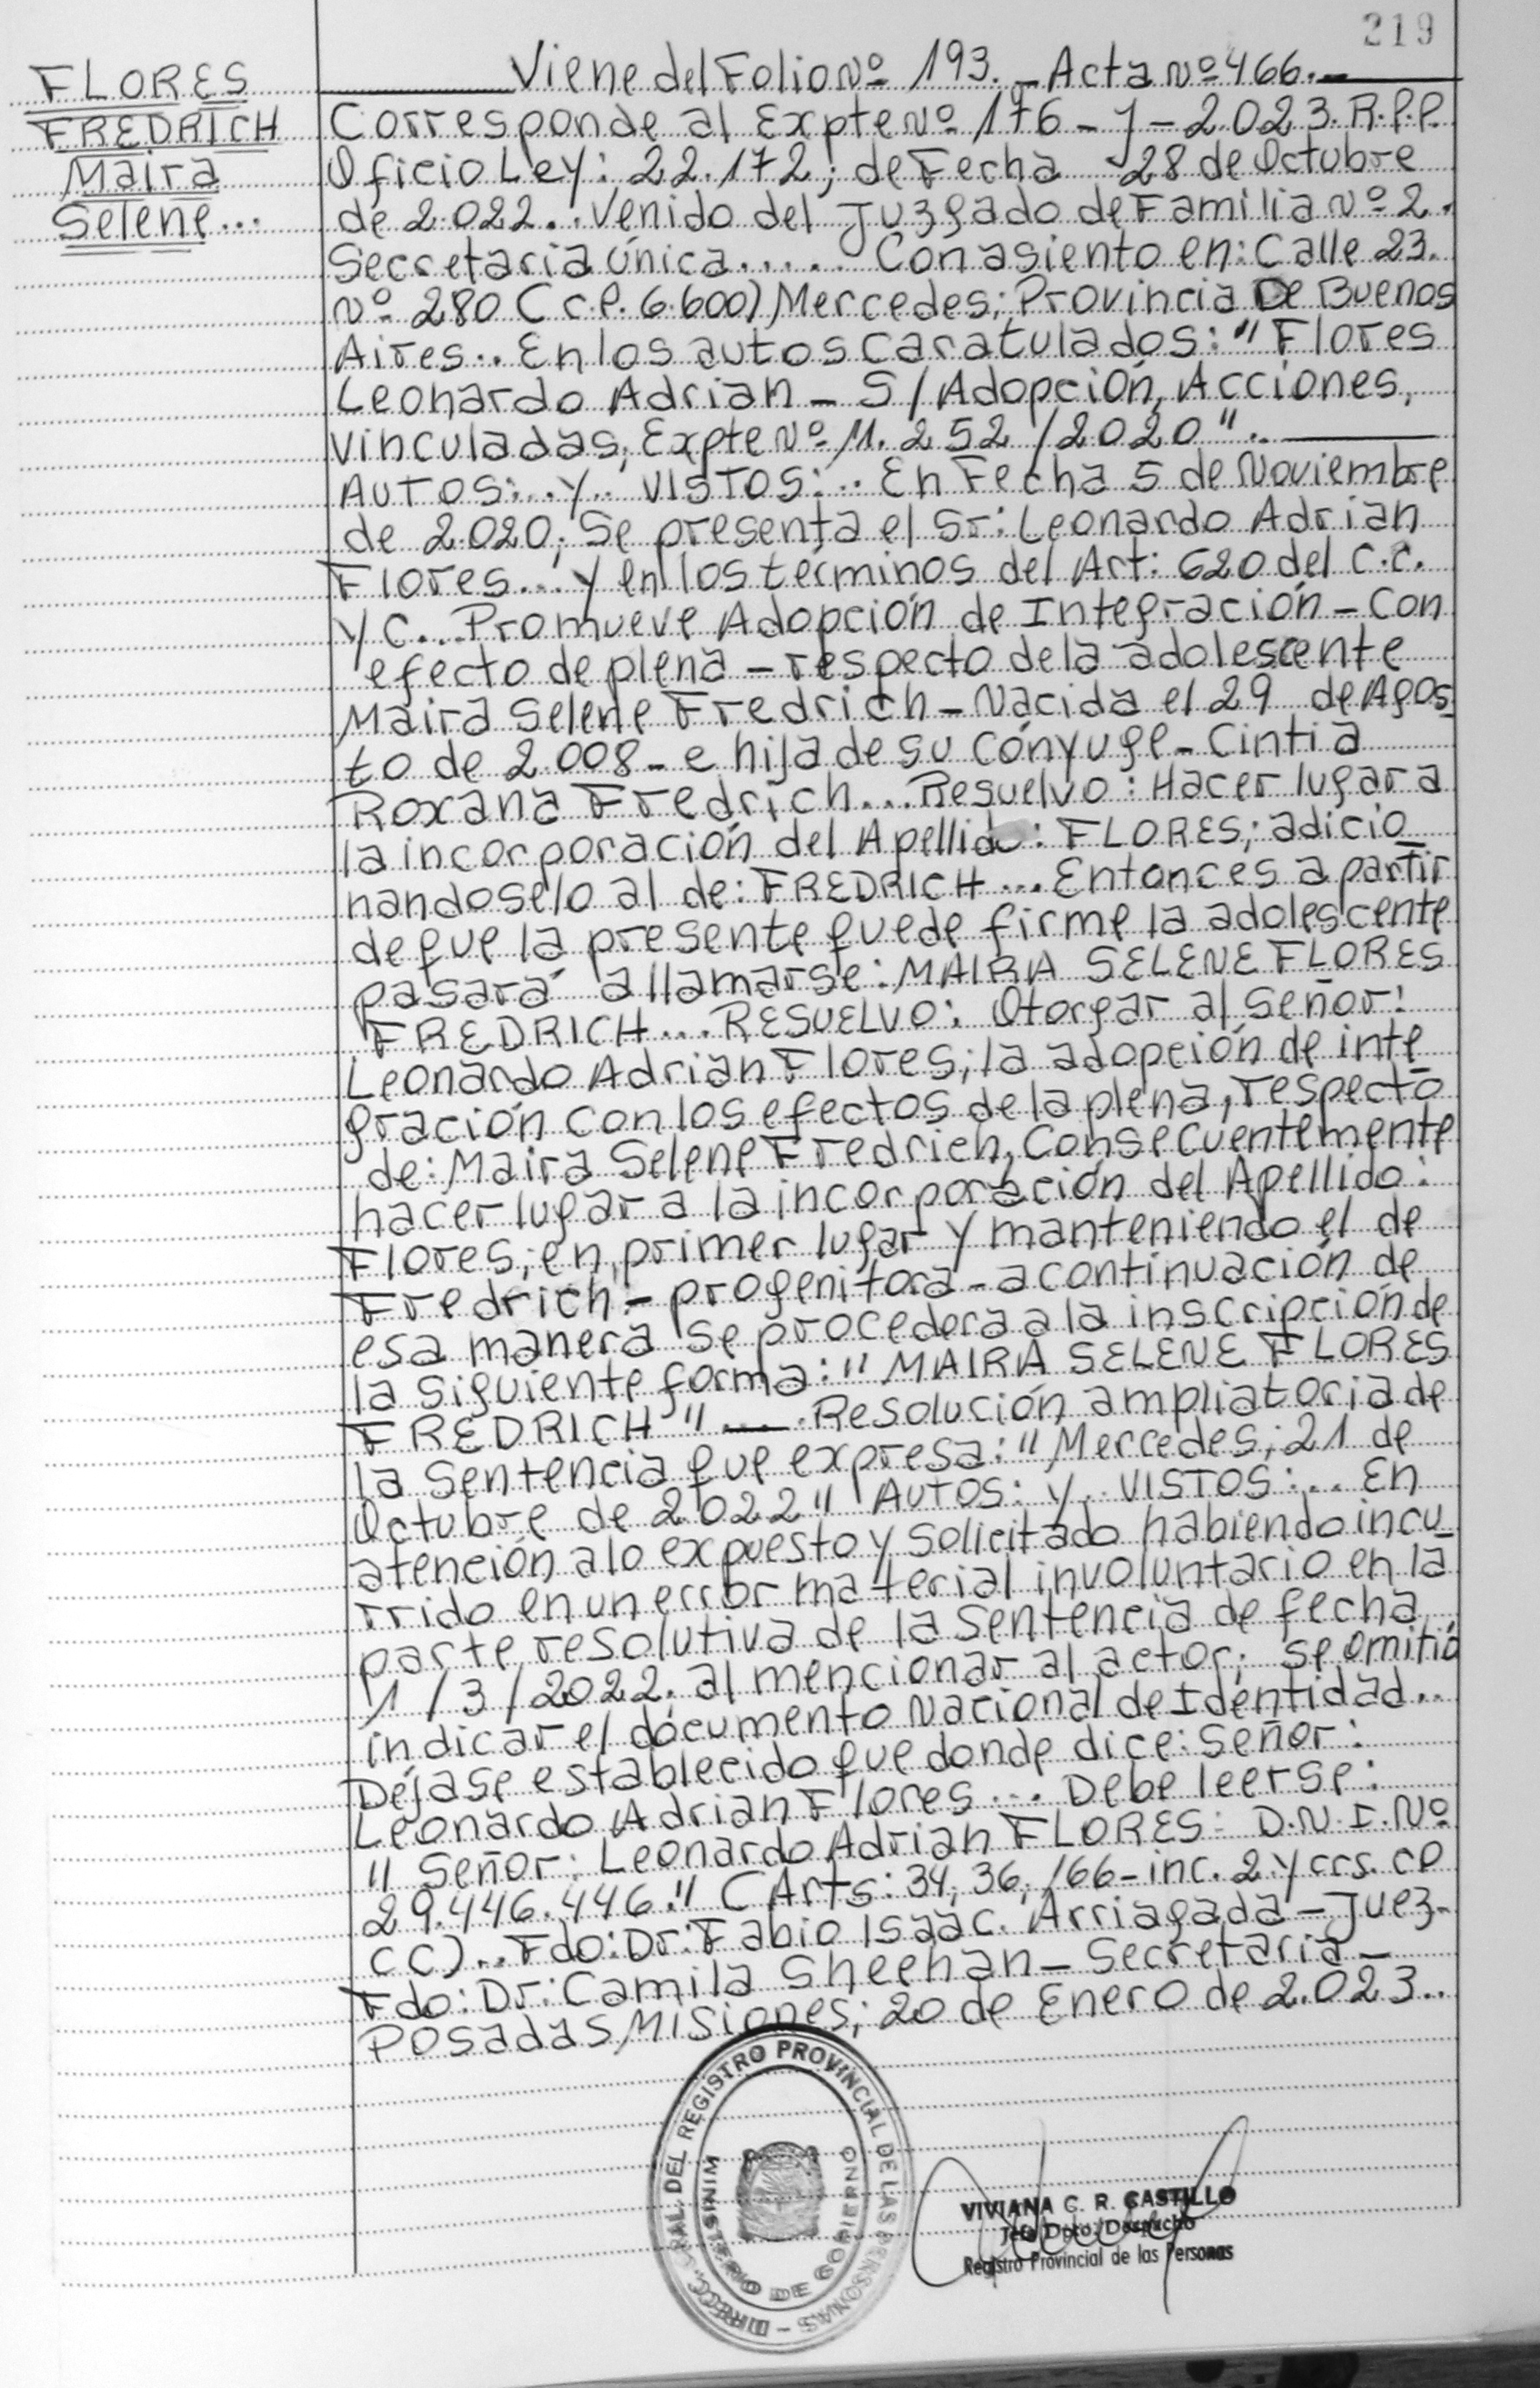 219
FLORES
FREDRICH
Maira
Selene...
Viene del Folio Nº 193._Acta Nº 466._
Corresponde al Expte Nº 176_J_2023. R.P.P.
Oficio Ley: 22.172; de Fecha 28 de Octubre
de 2.022.. Venido del Juzgado de Familia Nº 2.
Secretaria única...... Con asiento en: Calle 23.
Nº 280 (C.P. 6.600) Mercedes; Provincia De Buenos
Aires.. En los autos caratulados: "Flores
Leonardo Adrian _ S/Adopción, Acciones,
vinculadas; Expte Nº 11.252/2020".
AUTOS:..y.. VISTOS:.. En Fecha 5 de Noviembre
de 2.020; Se presenta el Sr: Leonardo Adrian
Flores... y en los términos del Art: 620 del C.C.
y C... Promueve Adopción de Integración - Con
efecto de plena - respecto de la adolescente
Maira Selene Fredrich - Nacida el 29 de Agos_
to de 2.008 - e hija de su cónyuge - Cintia
Roxana Fredrich... Resuelvo: Hacer lugar a
la incorporación del Apellido: FLORES; adicio_
nandoselo al de: FREDRICH... Entonces a partir
de que la presente quede firme la adolescente
pasará a llamarse: MAIRA SELENE FLORES
FREDRICH... RESUELVO: Otorgar al Señor:
Leonardo Adrian Flores; la adopción de inte_
gración con los efectos de la plena, respecto
de: Maira Selene Fredrich, Consecuentemente
hacer lugar a la incorporación del Apellido:
Flores; en primer lugar y manteniendo el de
Fredrich - progenitora - a continuación de
esa manera se procedera a la inscripción de
la siguiente forma: "MAIRA SELENE FLORES
FREDRICH" ___. Resolución ampliatoria de
la Sentencia que expresa: "Mercedes; 21 de
Octubre de 2022" AUTOS: y.. VISTOS:.. En
atención a lo expuesto y solicitado habiendo incu_
rrido en un error material involuntario en la
parte resolutiva de la Sentencia de fecha
1/3/2022. al mencionar al actor; se omitió
indicar el documento Nacional de Identidad..
Déjase establecido que donde dice: Señor:
Leonardo Adrian Flores... Debe leerse:
"Señor: Leonardo Adrian FLORES: D.N.I. Nº
29.446.446." (Arts: 34, 36, 166-inc. 2 y ccs. CP
CC).. Fdo: Dr: Fabio Isaac. Arriagada - Juez-
Fdo: Dr: Camila Sheehan _ Secretaria _
POSADAS, MISIONES; 20 de Enero de 2.023..
DIRECC. GRAL. DEL REGISTRO PROVINCIAL DE LAS PERSONAS -
MINISTERIO DE GOBIERNO
VIVIANA C. R. CASTILLO
Jefa Dpto. Despacho
Registro Provincial de las Personas